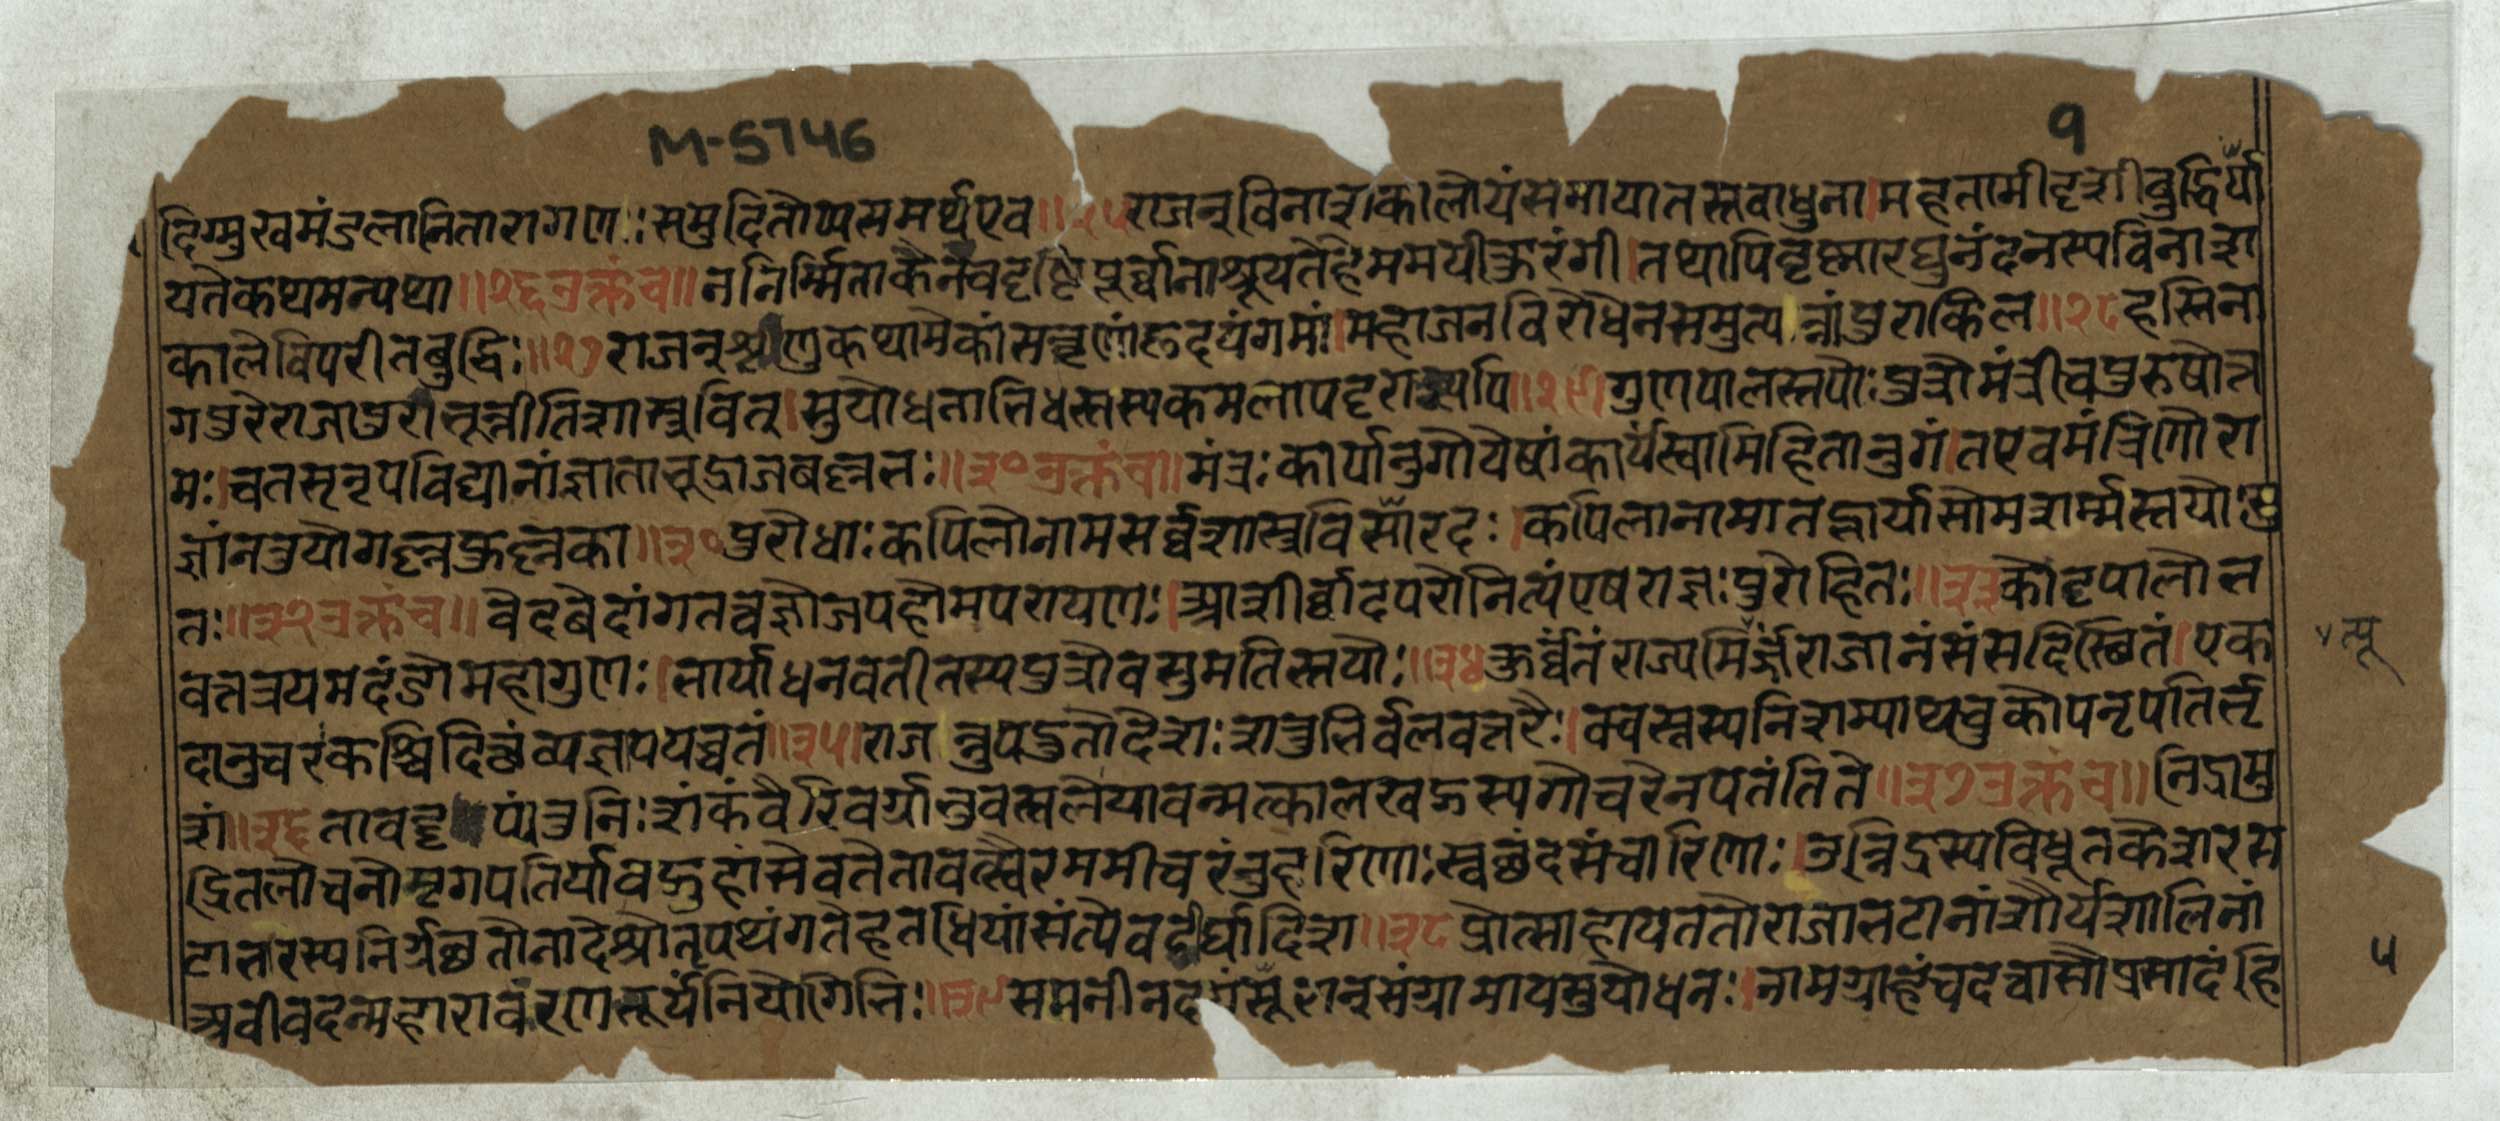 M-5746
१
दिग्मुखमंडलानितारागणाः समुदितोप्यसमर्थएव ॥२५ राजन् विनाशकालोयं समायातस्तवाधुना । महतामीदृशी बुद्धिर्या
यतेकथमन्यथा ॥२६ उक्तंच ॥ न निर्मिताकेनैवदृष्टिपूर्वानाश्रूयतेहेममयीकुरंगी । तथापितृष्णारघुनंदनस्यविनाश
कालेविपरीतबुद्धिः ॥२७ राजन्शृणुकथामेकांसनृणांहृदयंगमां । महाजनविरोधेनसमुत्पन्नांपुराकिल ॥२८ हस्तिना
गपुरेराजापुराभून्नीतिशास्त्रवित् । सुयोधनाभिधस्तस्यकमलापदृराज्यपि ॥२९। गुणपालस्तयोः पुत्रोमंत्रीचपुरुषोत्त
मः । चतसृनृपविद्यानांज्ञाताभूद्राजबल्लभः ॥३० उक्तंच ॥ मंत्रः कार्यानुगोयेषांकार्यंस्वामिहितानुगं । तएवमंत्रिणोरा
ज्ञांनतुयेगल्लफुल्लका ॥३० पुरोधाः कपिलोनामसर्वशास्त्रविसारदः । कपिलानामातद्भार्यासोमशर्मास्तयोः सु
तः ॥३२ उक्तंच ॥ वेदबेदांगतत्वज्ञोजपहोमपरायणः । आशीर्वादपरोनित्यंएषराज्ञः पुरोहितः ॥३३ कोदृपालोभ
वत्तत्रयमदंडोमहागुणः । भार्याधनवतीतस्यपुत्रोवसुमतिस्तयोः ॥३४ कुर्वंतंराज्यमिर्जंराजानंसंसदिस्थितं । एक
दानुचरंकश्चिदित्थंव्यज्ञपयच्चतं ॥३५। राजन्नुपद्रुतोदेशः शत्रुभिर्बलवत्तरैः । क्वस्तस्यनिशम्याथचुकोपनृपतिर्भृ
शं ॥३६ तावदृप्यंतुनिः शंकंवैरिवर्गानुवत्सलेयावन्मत्कालखड्गस्यगोचरेनपतंतिते ॥३७ उक्तंच ॥ निद्रामु
द्रितलोचनोमृगपतिर्यावद्गुहांसेवतेतावत्स्वैरममीचरंतुहरिणाः स्वछंदसंचारिणः । उन्निद्रस्यविधूतकेशरस
टाभारस्यनिर्गछतोनादेश्रोतृपथंगतेहतधियांसंत्येवदीर्घादिश ॥३८ प्रोत्साहायततोराजाभटानांशौर्यशालिनां
अवीवदन्महारावंरणेतूर्यंनियोगिभिः ॥३९ सममनीनद सूरान्संग्रामायसुयोधनः । नामग्राहंचदत्वासौप्रसादंहि
त्पू
५